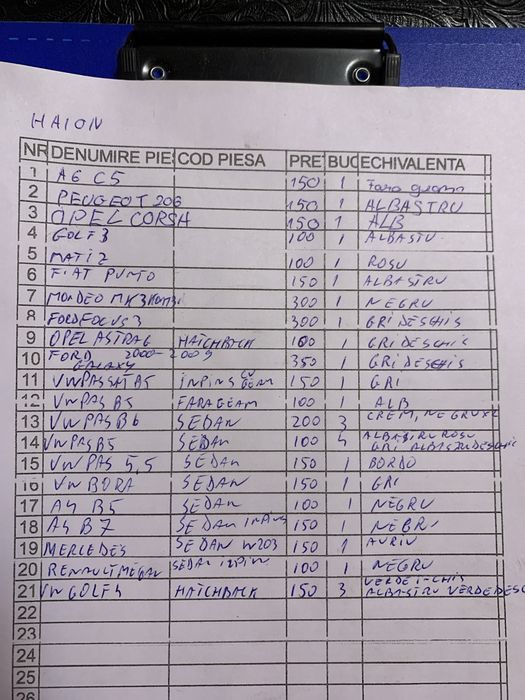 HAION
NR DENUMIRE PIE COD PIESA PRE BUC ECHIVALENTA
1 A6 C5 150 1 Fara geam
2 PEUGEOT 206 150 1 ALBASTRU
3 OPEL CORSA 150 1 ALB
4 GOLF 3 100 1 ALBASTU
5 MATIZ 100 1 ROSU
6 FIAT PUNTO 150 1 ALBASTRU
7 MONDEO MK3 KOMBI 300 1 NEGRU
8 FORD FOCUS 3 300 1 GRI DESCHIS
9 OPEL ASTRA G HATCHBACK 100 1 GRI DESCHIS
10 FORD GALAXY 2000-2009 350 1 GRI DESCHIS
11 VW PASSAT B5 INPINS CU GEAM 150 1 GRI
12 VW PAS B5 FARA GEAM 100 1 ALB
13 VW PAS B6 SEDAN 200 3 CREM, NEGRU X2
14 VW PAS B5 SEDAN 100 4 ALBASTRU ROSU GRI ALBASTRU DESCHIS
15 VW PAS 5,5 SEDAN 150 1 BORDO
16 VW BORA SEDAN 150 1 GRI
17 A4 B5 SEDAN 100 1 NEGRU
18 A4 B7 SEDAN INPINS 150 1 NEGRU
19 MERCEDES SEDAN W203 150 1 AURIU
20 RENAULT MEGAN SEDAN 100 1 NEGRU
21 VW GOLF 4 HATCHBACK 150 3 VERDE ALBASTRU VERDE DESC
22
23
24
25
26